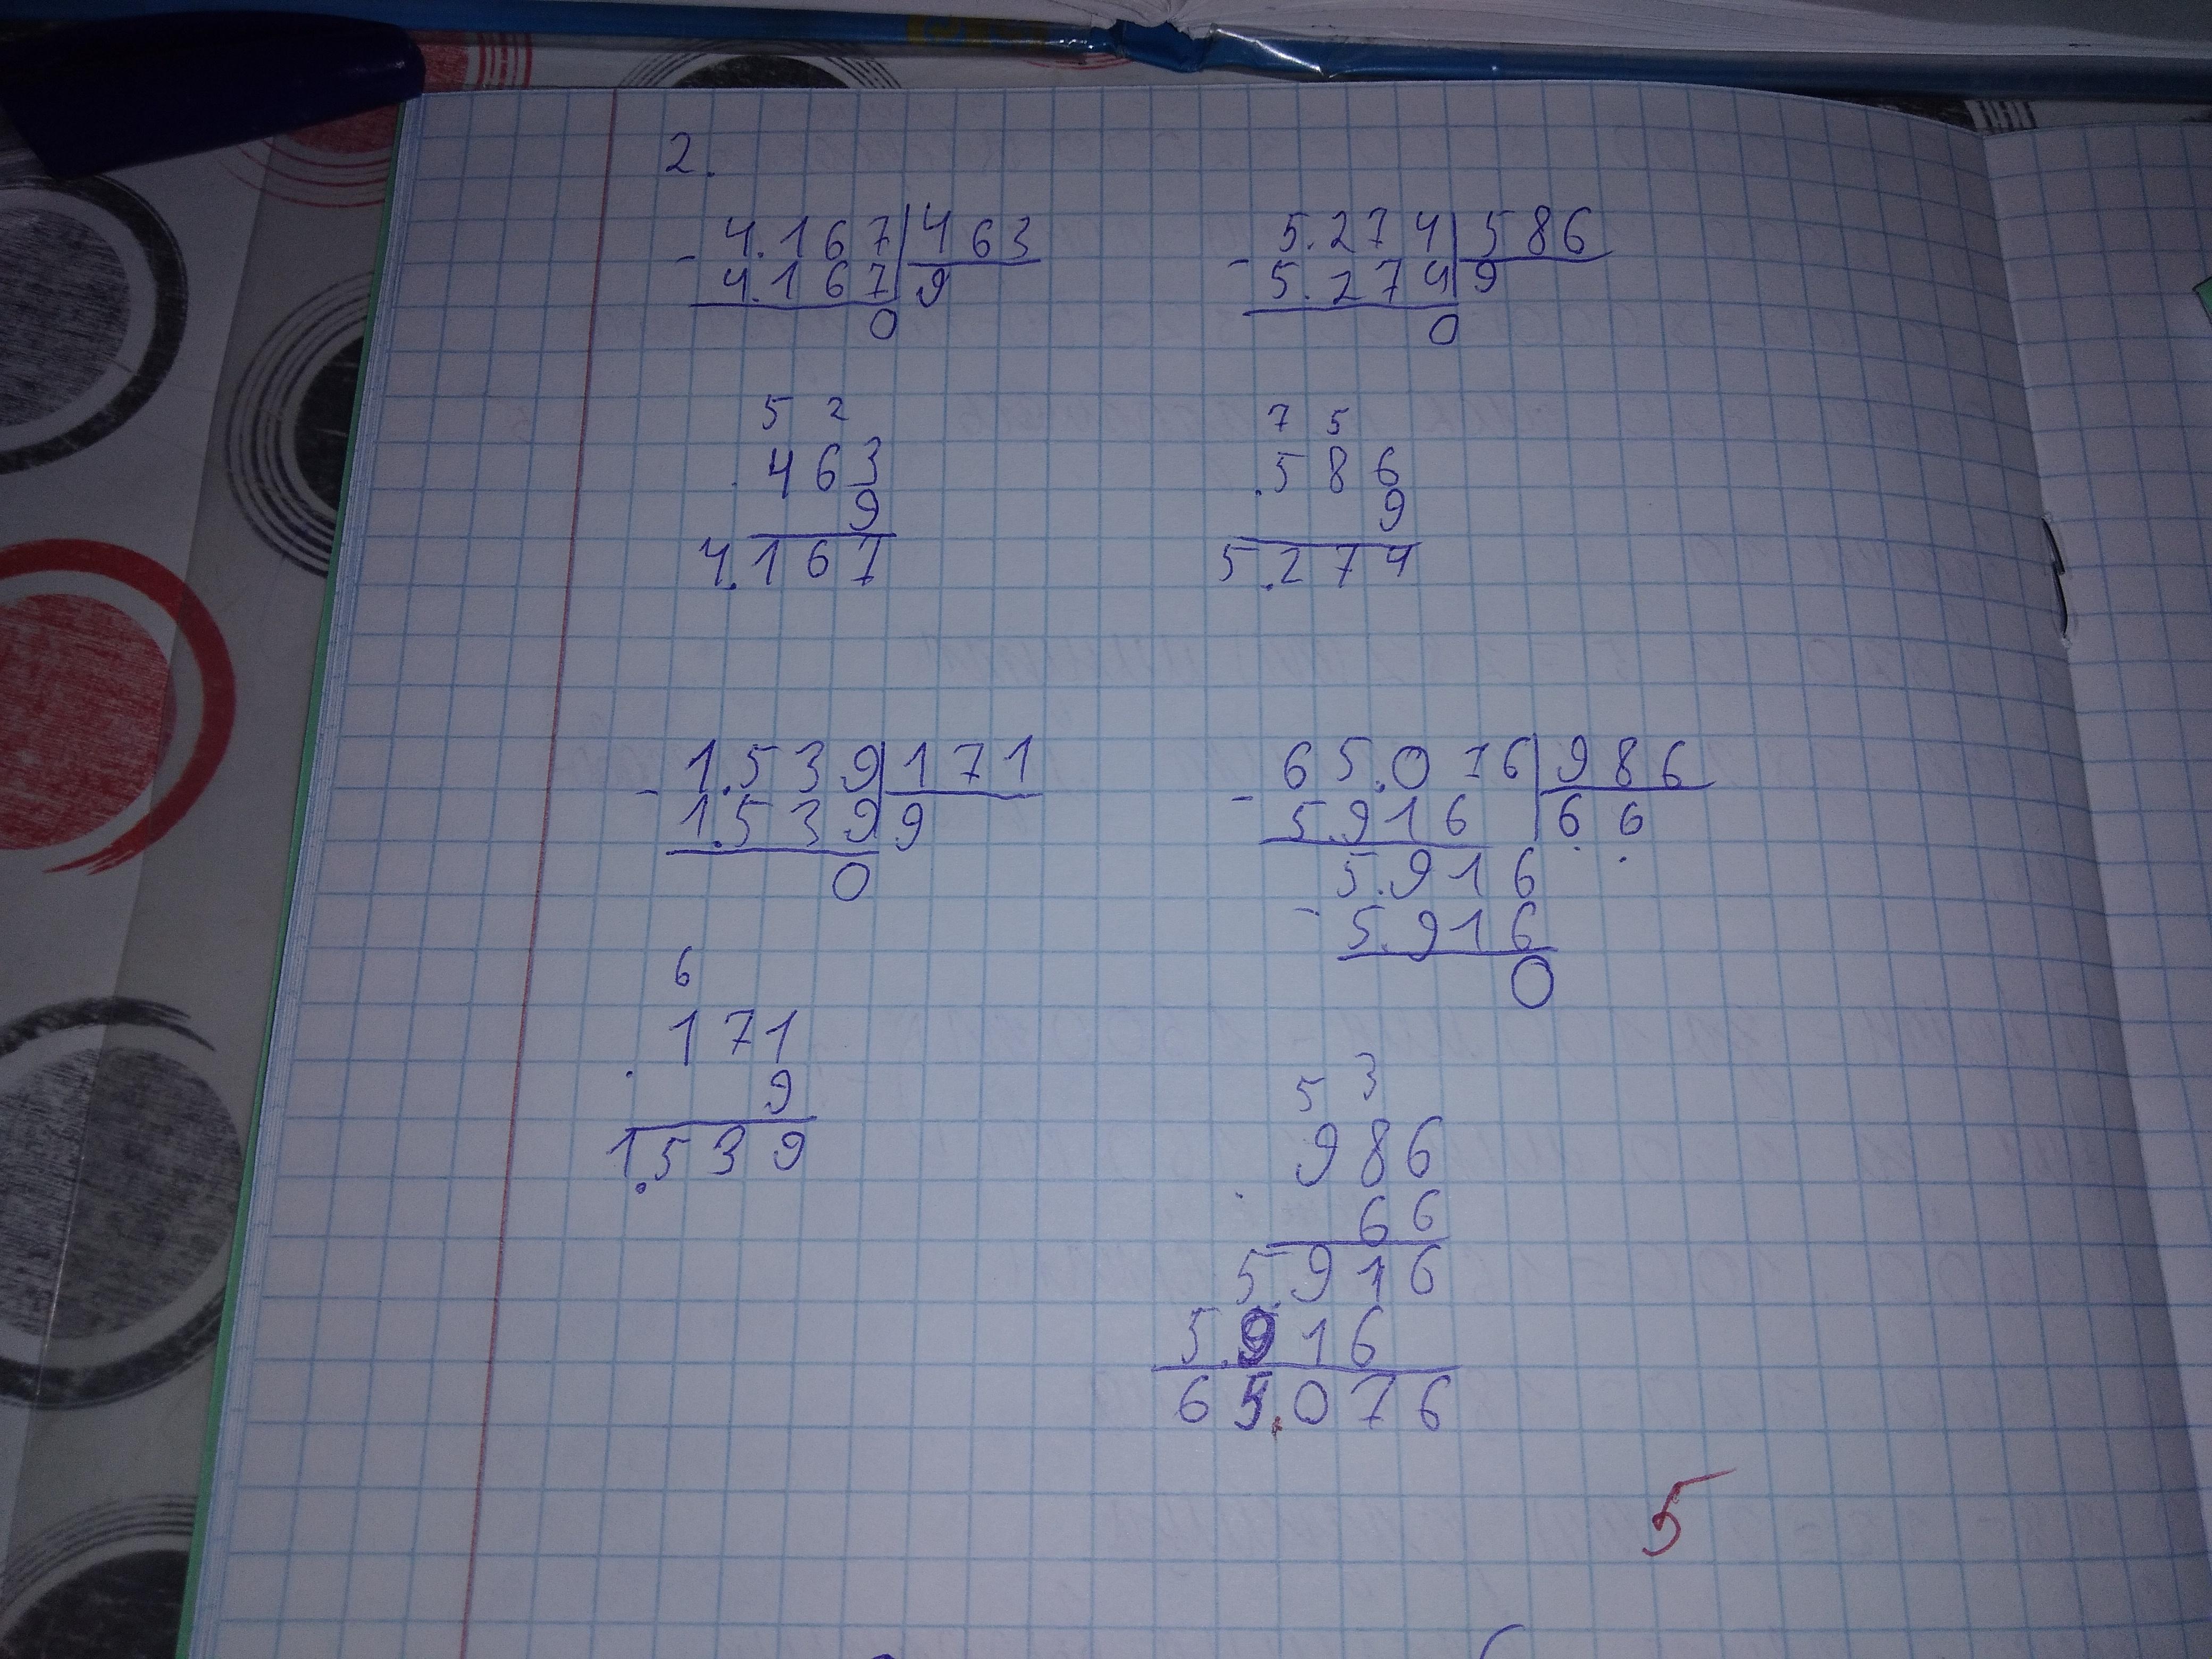 2.
- 4.167 | 463
4.167 | 9
0
5 2
. 463
9
4.167
- 5.274 | 586
5.274 | 9
0
7 5
. 586
9
5.274
- 1.539 | 171
1.539 | 9
0
6
. 171
9
1.539
- 65.076 | 986
5.916 | 66
5.916
- 5.916
0
5 3
. 986
66
5.916
5.916
65.076
5